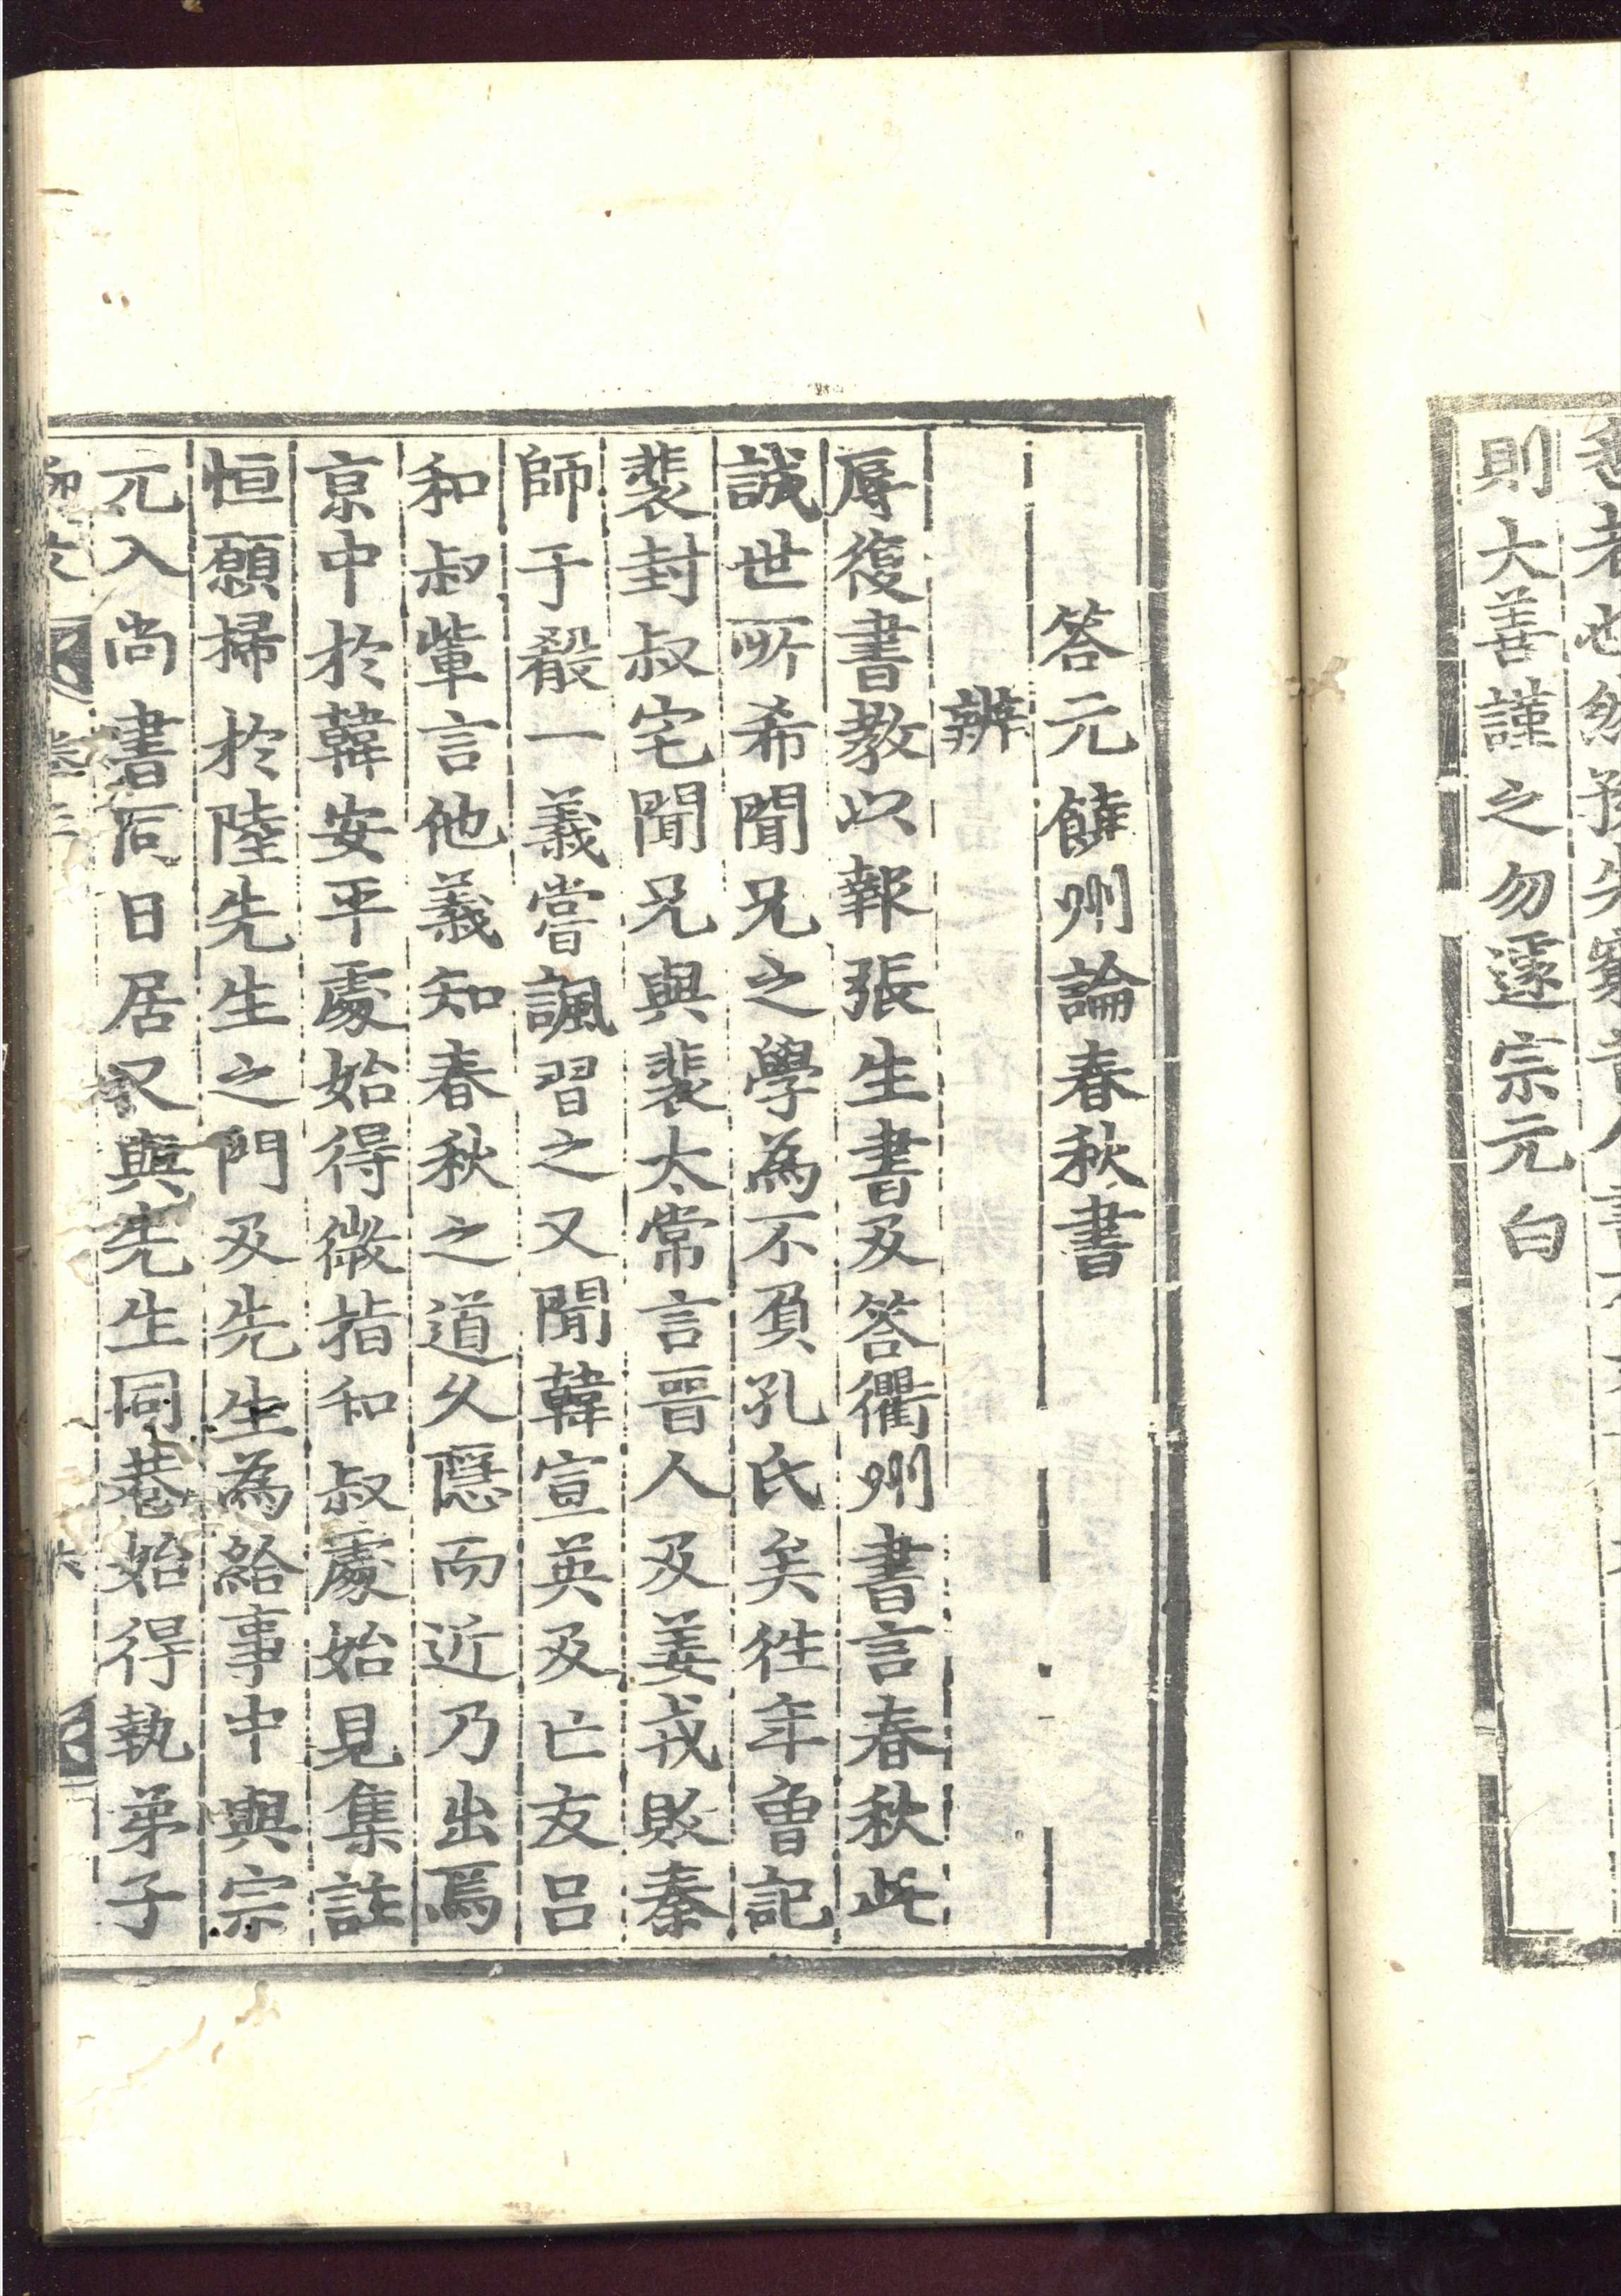 則大善謹之勿遽宗元白
答元饒州論春秋書
辨
辱復書教以報張生書及答衢州書言春秋此
誠世所希聞兄之學為不負孔氏矣徃年曾記
裴封叔宅聞兄與裴太常言晉人及姜戎敗秦
師于殽一義嘗諷習之又聞韓宣英及亡友呂
和叔輩言他義知春秋之道久隱而近乃出焉
京中於韓安平處始得微指和叔處始見集註
恒願掃於陸先生之門及先生為給事中與宗
元入尚書同日居又與先生同巷始得執弟子